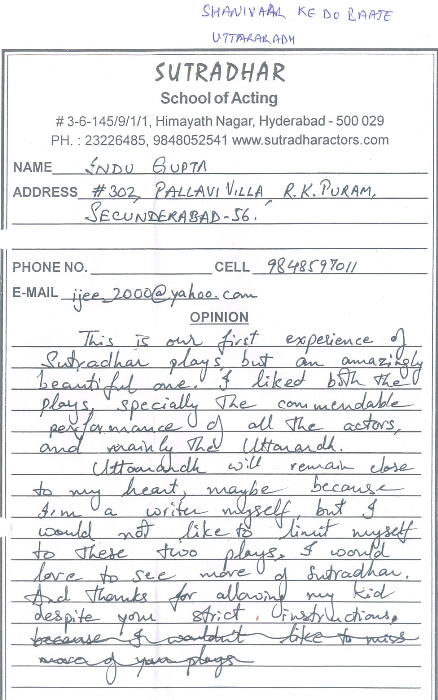 SHANIVAAR KE DO BAATE
UTTARARADH
SUTRADHAR
School of Acting
# 3-6-145/9/1/1, Himayath Nagar, Hyderabad - 500 029
PH. : 23226485, 9848052541 www.sutradharactors.com
NAME INDU GUPTA
ADDRESS #302, PALLAVI VILLA, R.K. PURAM,
SECUNDERABAD-56.
PHONE NO. CELL 9848597011
E-MAIL ijee_2000@yahoo.com
OPINION
This is our first experience of
Sutradhar plays, but an amazingly
beautiful one. I liked both the
plays, specially the commendable
performance of all the actors,
and mainly that Uttarardh.
Uttarardh will remain close
to my heart, maybe because
I'm a writer myself, but I
would not like to limit myself
to these two plays. I would
love to see more of Sutradhar.
And thanks for allowing my kid
despite your strict instructions,
because I wouldn't like to miss
more of your plays